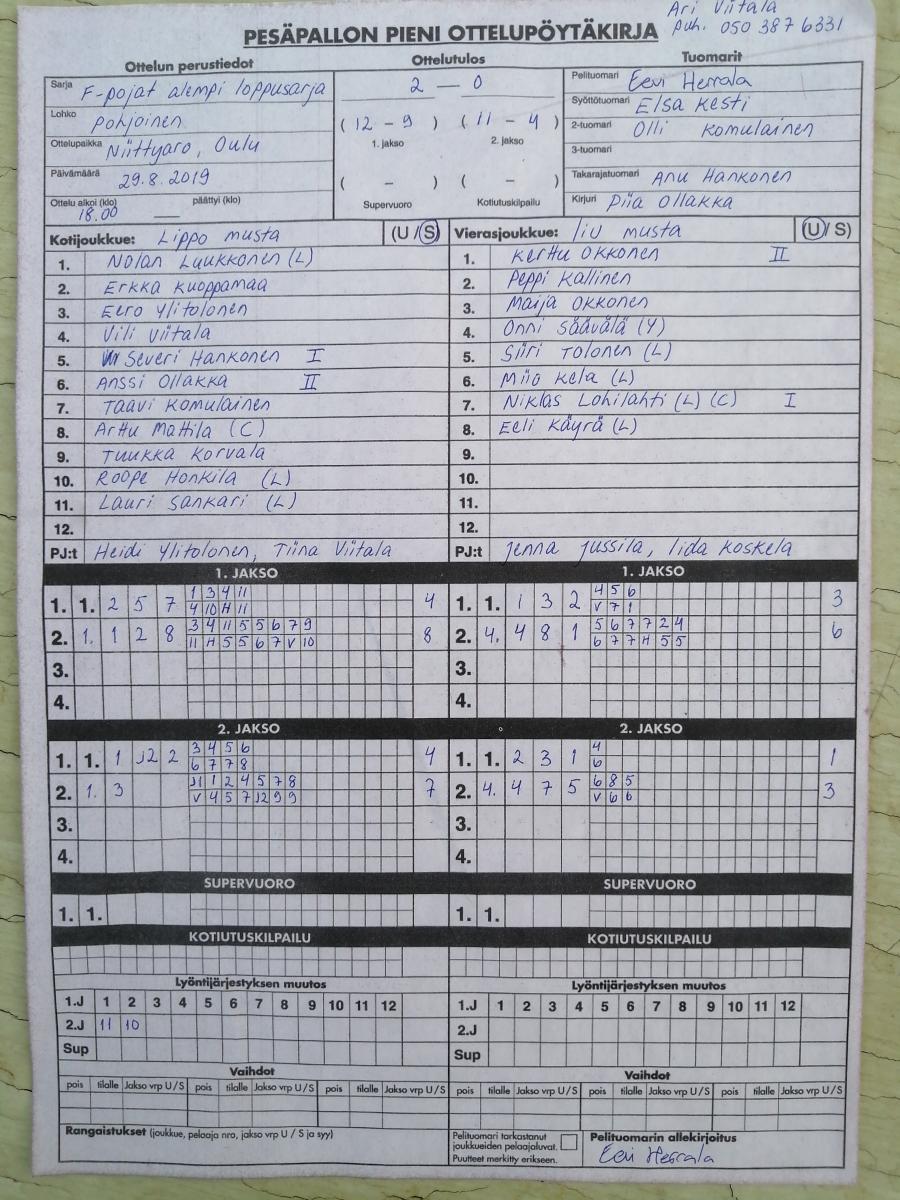 Ari Viitala
puh. 050 387 6331
PESÄPALLON PIENI OTTELUPÖYTÄKIRJA
Ottelun perustiedot
Sarja F-pojat alempi loppusarja
Lohko Pohjoinen
Ottelupaikka Niittyaro, Oulu
Päivämäärä 29.8.2019
Ottelu alkoi (klo) 18.00 päättyi (klo)
Ottelutulos
2 — 0
( 12 - 9 ) ( 11 - 4 )
1. jakso 2. jakso
( - ) ( - )
Supervuoro Kotiutuskilpailu
Tuomarit
Pelituomari Eevi Herrala
Syöttötuomari Elsa Kesti
2-tuomari Olli Komulainen
3-tuomari
Takarajatuomari Anu Hankonen
Kirjuri Piia Ollakka
Kotijoukkue: Lippo musta (U/S)
1. Nolan Luukkonen (L)
2. Erkka Kuoppamaa
3. Eero Ylitolonen
4. Vili Viitala
5. Severi Hankonen I
6. Anssi Ollakka II
7. Taavi Komulainen
8. Arttu Mattila (C)
9. Tuukka Korvala
10. Roope Honkila (L)
11. Lauri Sankari (L)
12.
PJ:t Heidi Ylitolonen, Tiina Viitala
Vierasjoukkue: liv musta (U/S)
1. Kerttu Okkonen II
2. Peppi Kallinen
3. Maija Okkonen
4. Onni Säävälä (Y)
5. Siiri Tolonen (L)
6. Miio Kela (L)
7. Niklas Lohilahti (L) (C) I
8. Eeli Käyrä (L)
9.
10.
11.
12.
PJ:t Jenna Jussila, Iida Koskela
1. JAKSO
1. 1. 2 5 7 1 3 4 11 4
4 10 H 11
2. 1. 1 2 8 3 4 11 5 5 6 7 9 8
11 H 5 5 6 7 V 10
3.
4.
1. JAKSO
1. 1. 1 3 2 4 5 6 3
V 7 1
2. 4. 4 8 1 5 6 7 7 2 4 6
6 7 7 H 5 5
3.
4.
2. JAKSO
1. 1. 1 J2 2 3 4 5 6 4
6 7 7 8
2. 1. 3 J1 1 2 4 5 7 8 7
V 4 5 7 J2 9 9
3.
4.
2. JAKSO
1. 1. 2 3 1 4 1
6
2. 4. 4 7 5 6 8 5 3
V 6 6
3.
4.
SUPERVUORO
1. 1.
SUPERVUORO
1. 1.
KOTIUTUSKILPAILU
KOTIUTUSKILPAILU
Lyöntijärjestyksen muutos
1.J 1 2 3 4 5 6 7 8 9 10 11 12
2.J 11 10
Sup
Lyöntijärjestyksen muutos
1.J 1 2 3 4 5 6 7 8 9 10 11 12
2.J
Sup
Vaihdot
pois tilalle Jakso vrp U/S pois tilalle Jakso vrp U/S pois tilalle Jakso vrp U/S
Vaihdot
pois tilalle Jakso vrp U/S pois tilalle Jakso vrp U/S pois tilalle Jakso vrp U/S
Rangaistukset (joukkue, pelaaja nro, jakso vrp U / S ja syy)
Pelituomari tarkastanut
joukkueiden pelaajaluvat.
Puutteet merkitty erikseen.
Pelituomarin allekirjoitus
Eevi Herrala